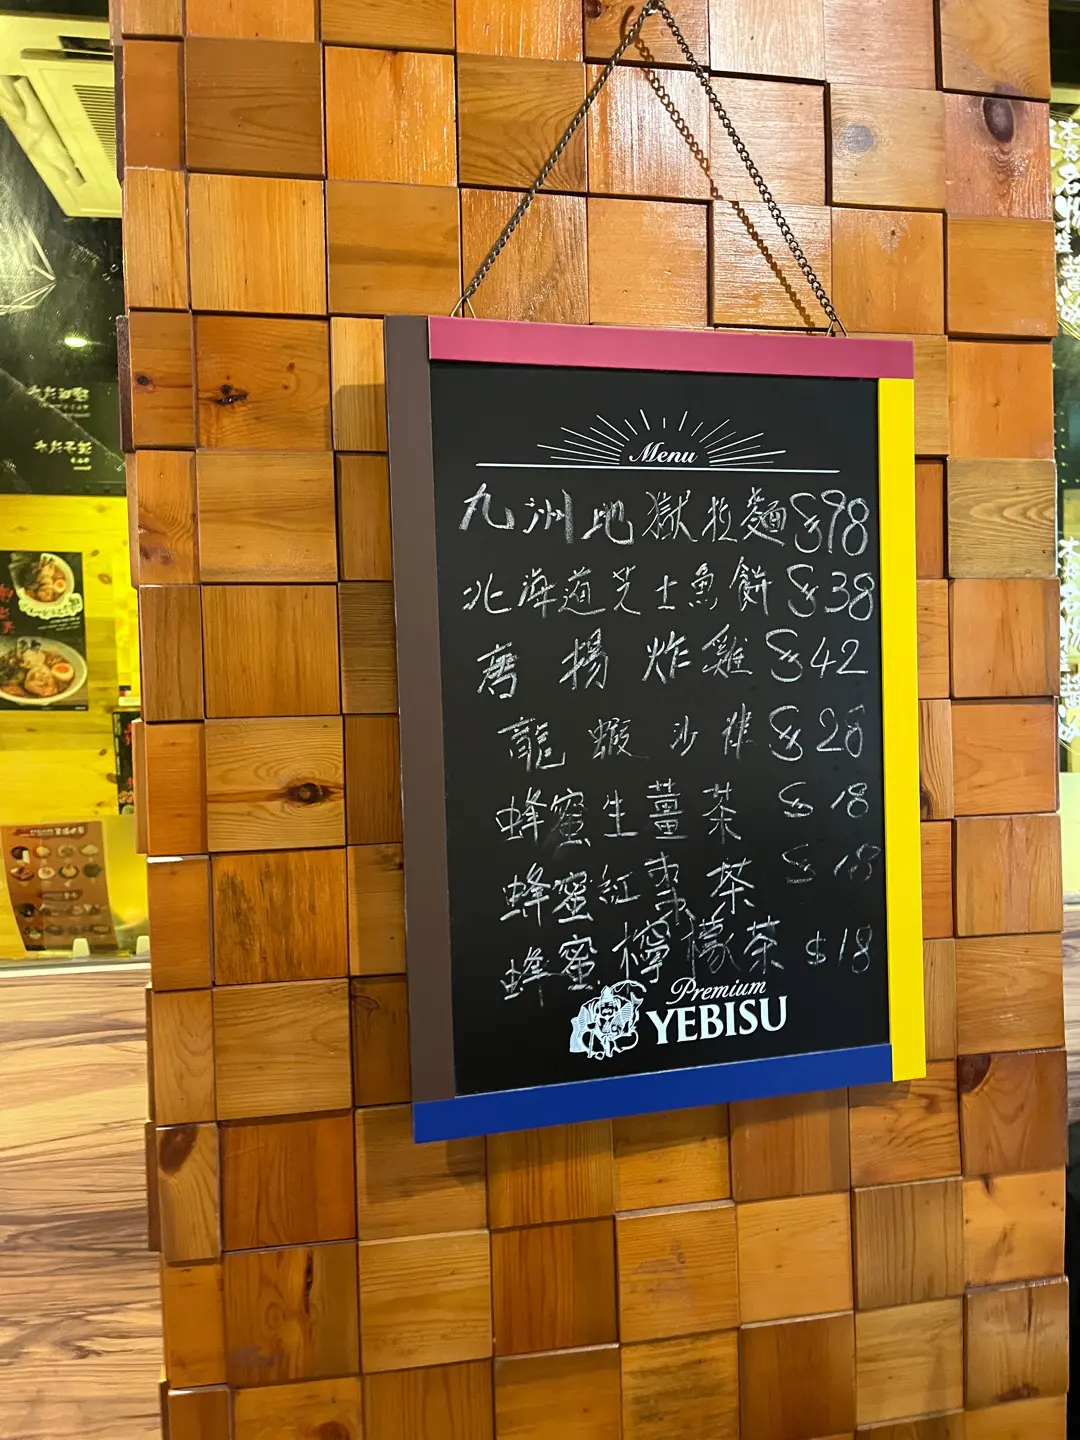 Menu
九洲地獄拉麵 $98
北海道芝士魚餅 $38
唐揚炸雞 $42
龍蝦沙律 $28
蜂蜜生薑茶 $18
蜂蜜紅棗茶 $18
蜂蜜檸檬茶 $18
Premium
YEBISU